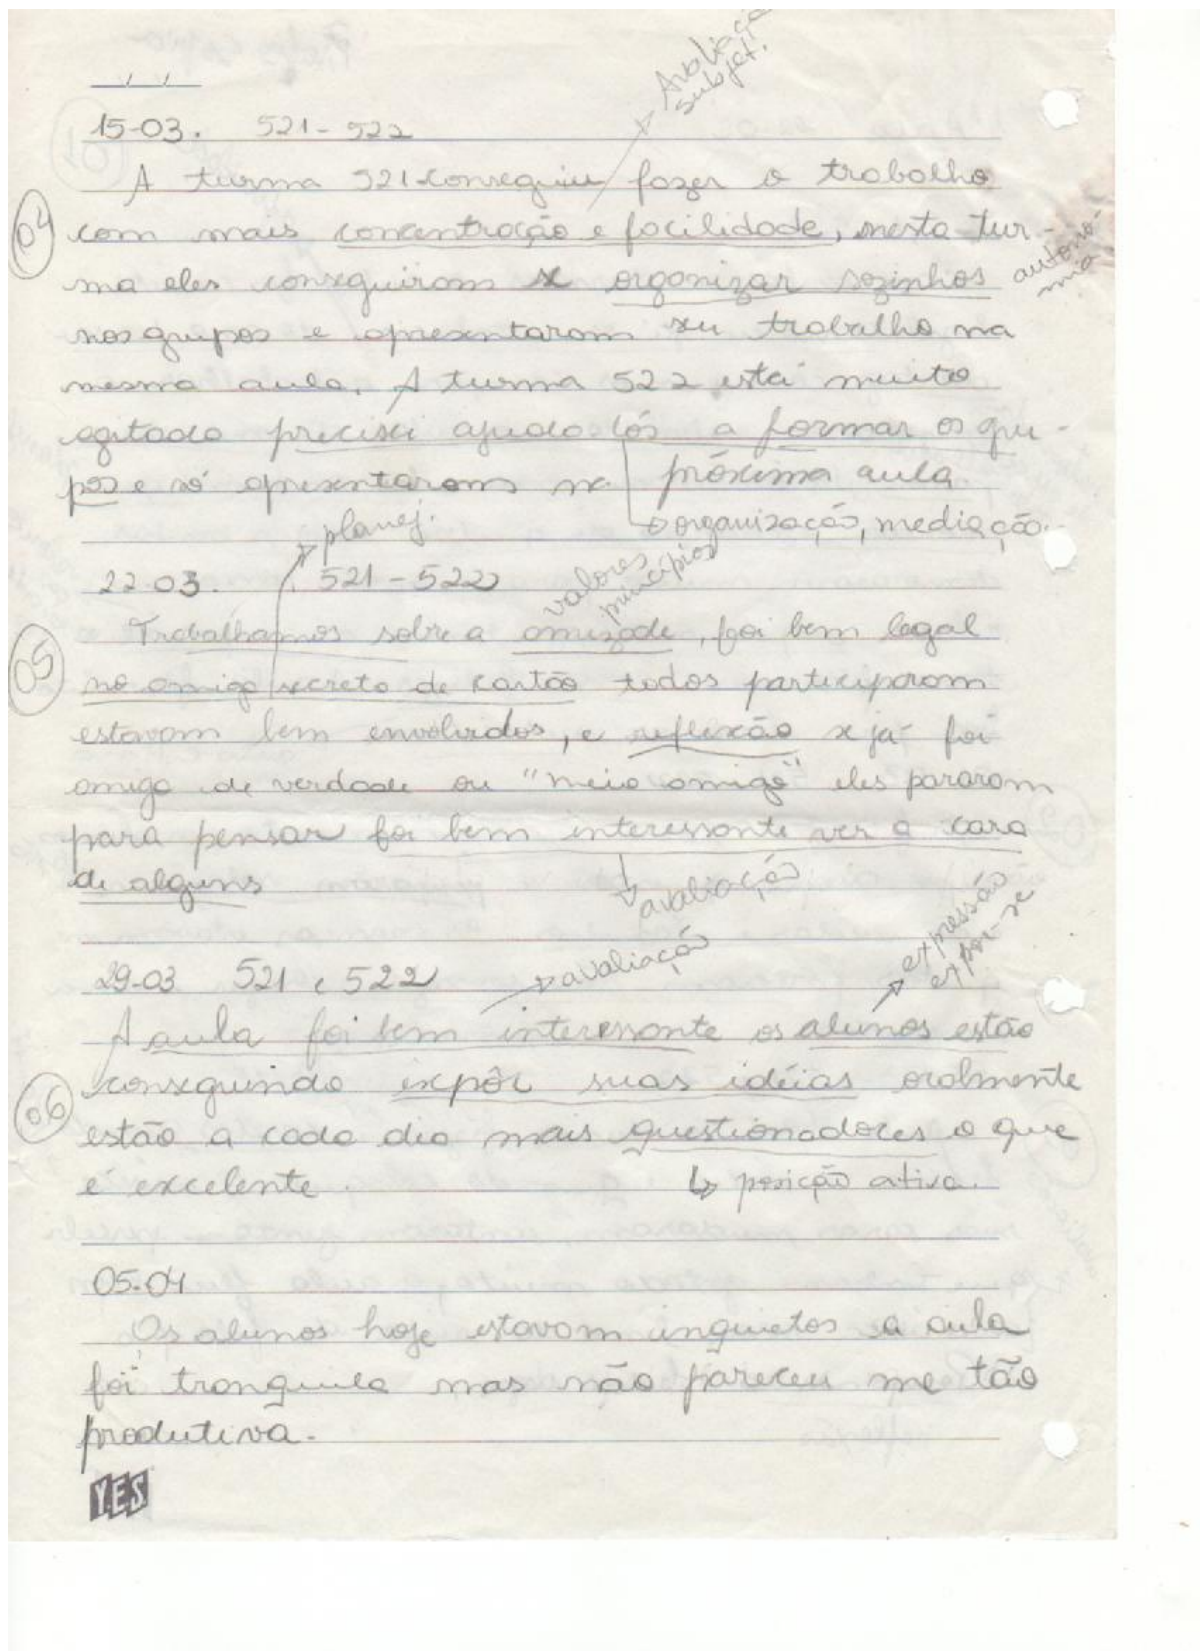 Avaliaç
subjet.
15-03. 521 - 522
A turma 521 conseguiu fazer o trabalho
04
com mais concentração e facilidade, nesta tur-
autono-
mia
ma eles conseguiram se organizar sozinhos
nos grupos e apresentaram seu trabalho na
mesma aula. A turma 522 está muito
agitada precisei ajuda los a formar os gru-
pos e só apresentaram na próxima aula
organização, mediação.
planej.
22-03. 521 - 522
valores
princípios
Trabalhamos sobre a amizade, foi bem legal
05
no amigo secreto de cartão todos participaram
estavam bem envolvidos, e reflexão se já foi
amigo de verdade ou "meio amigo" eles pararam
para pensar foi bem interessante ver a cara
de alguns
avaliação
29-03 521 e 522
avaliação
expressão
expor-se
A aula foi bem interessante os alunos estão
conseguindo expôr suas idéias oralmente
06
estão a cada dia mais questionadores o que
é excelente.
posição ativa.
05-04
Os alunos hoje estavam inquietos a aula
foi tranquila mas não pareceu me tão
produtiva.
Y.E.S.